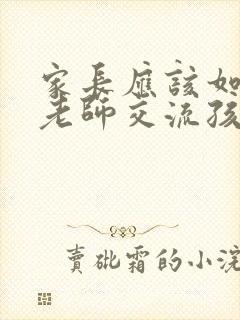 家長應該如
老師交流孩
賣砒霜的小浣